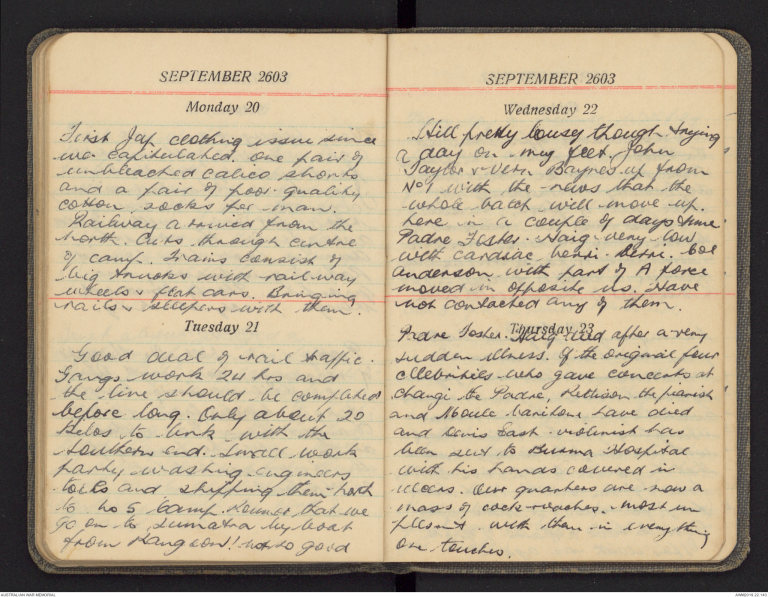 SEPTEMBER 2603
Monday 20
First Jap clothing issue since
we capitulated. One pair of
unbleached calico shorts
and a pair of poor quality
cotton socks per man.
Railway arrived from the
north. Cuts through centre
of camp. Trains consist of
big trucks with railway
wheels & flat cars. Bringing
rails & sleepers with them.
Tuesday 21
Good deal of rail traffic.
Gangs work 24 hrs and
the line should be completed
before long. Only about 20
kilos to link with the
southern end. Small work
party washing engineers
tools and shipping them north
to No 5 Camp. Rumor that we
go on to Sumatra by boat
from Rangoon! Not so good
SEPTEMBER 2603
Wednesday 22
Still pretty lousy though trying
a day on my feet. John
Taylor & Vern Baynes up from
No 1 with the news that the
whole batch will move up
here in a couple of days time.
Padre Foster-Haig very low
with cardiac beri-beri. Col
Anderson with part of A force
moved in opposite us. Have
not contacted any of them.
Thursday 23
Padre Foster-Haig died after a very
sudden illness. Of the original four
celebrities who gave concerts at
Changi the Padre, the pianist
and Moule baritone have died
and Denis East violinist has
been sent to Burma Hospital
with his hands covered in
ulcers. Our quarters are now a
mass of cock-roaches. Most un
pleasant with them in everything
one touches.
AUSTRALIAN WAR MEMORIAL